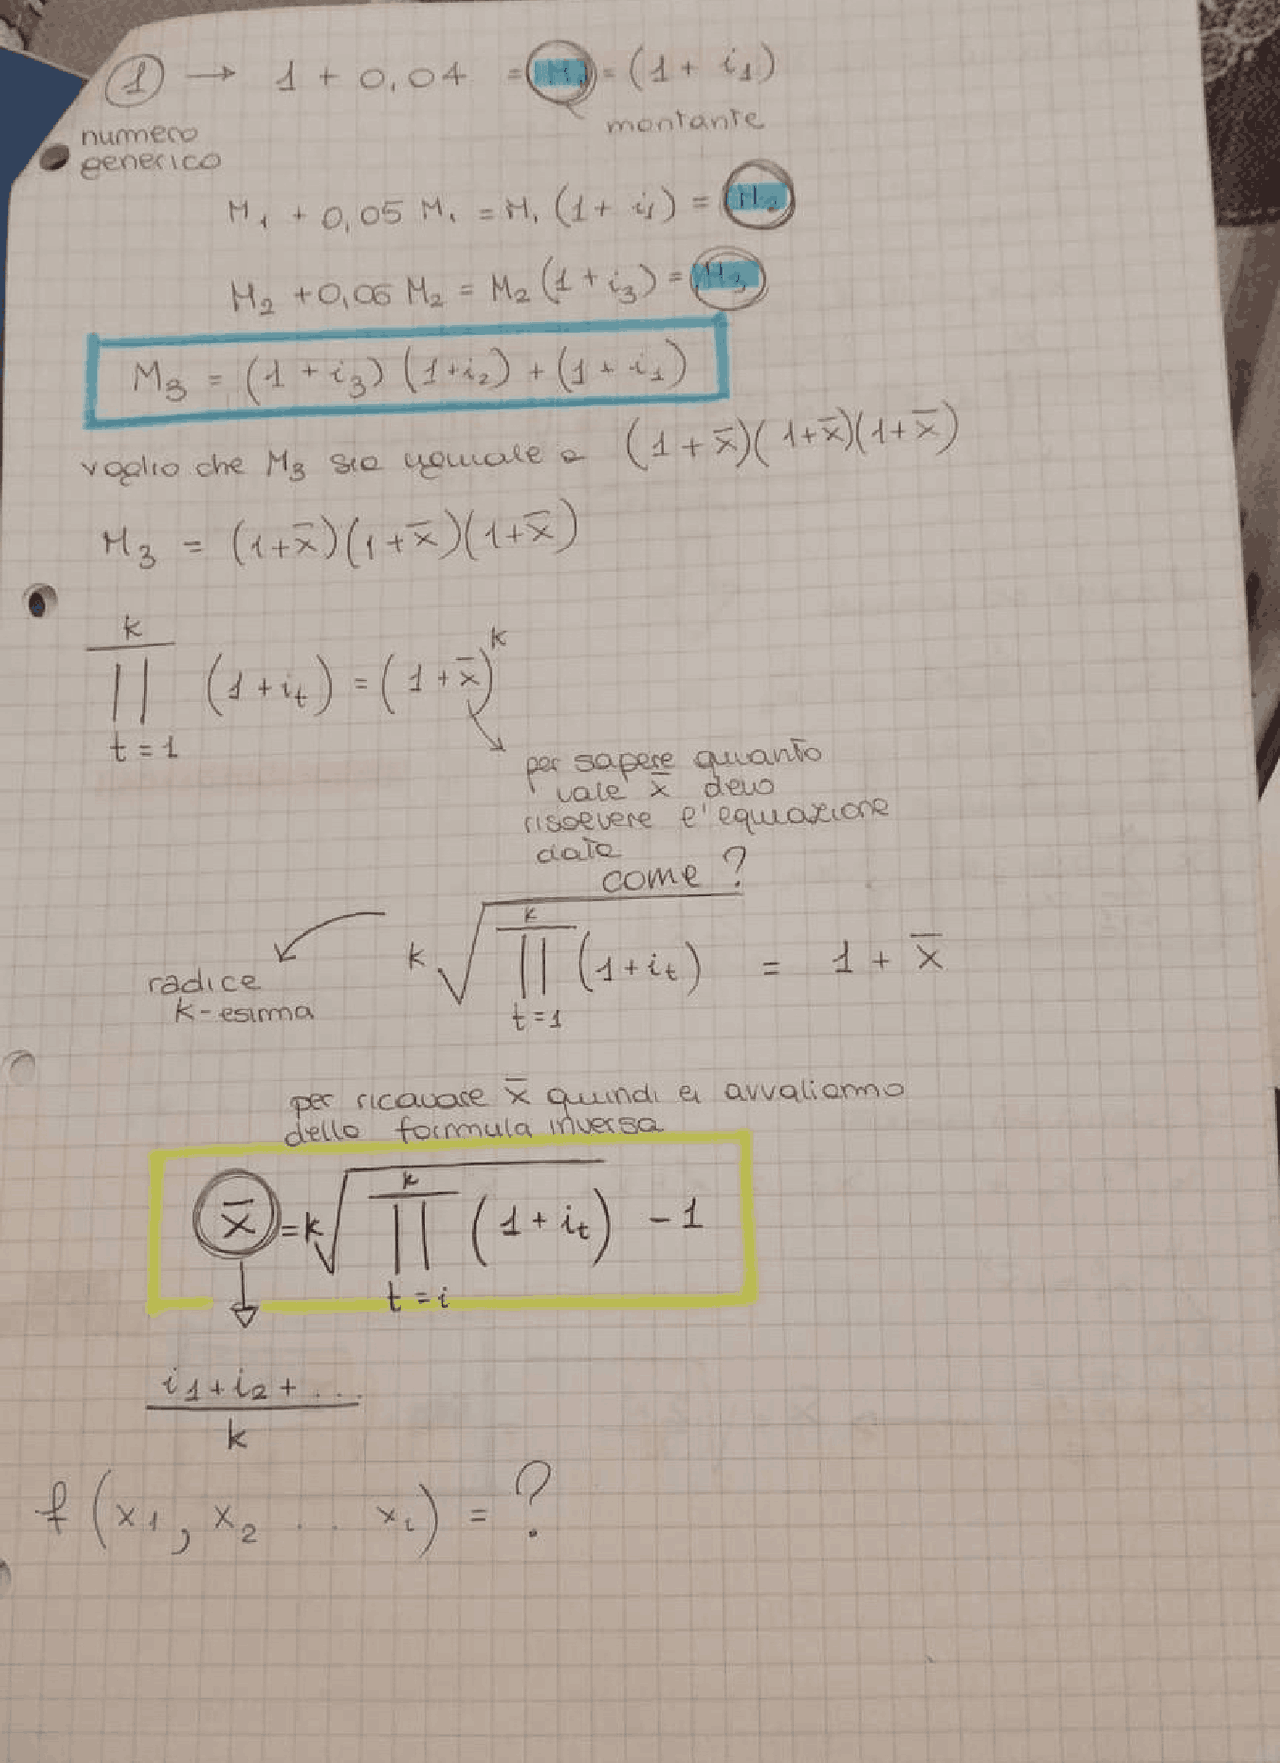 ① → 1 + 0,04 = M₁ = (1 + i₁)
numero
generico
montante
M₁ + 0,05 M₁ = M₁ (1 + i₁) = M₂
M₂ + 0,06 M₂ = M₂ (1 + i₃) = M₃
M₃ = (1 + i₃) (1+i₂) + (1 + i₁)
voglio che M₃ sia uguale a (1 + x̄)(1+x̄)(1+x̄)
M₃ = (1+x̄)(1+x̄)(1+x̄)
k
∏ (1+iₜ) = (1+x̄)ᵏ
t = 1
per sapere quanto
vale x̄ devo
risolvere l'equazione
data
come?
radice
k-esima
k√ k∏ (1+iₜ) = 1 + x̄
t=1
per ricavare x̄ quindi ci avvaliamo
della formula inversa
x̄ = k√ k∏ (1+iₜ) - 1
t = i
i₁+i₂+ ...
k
f (x₁, x₂ ... xᵢ) = ?